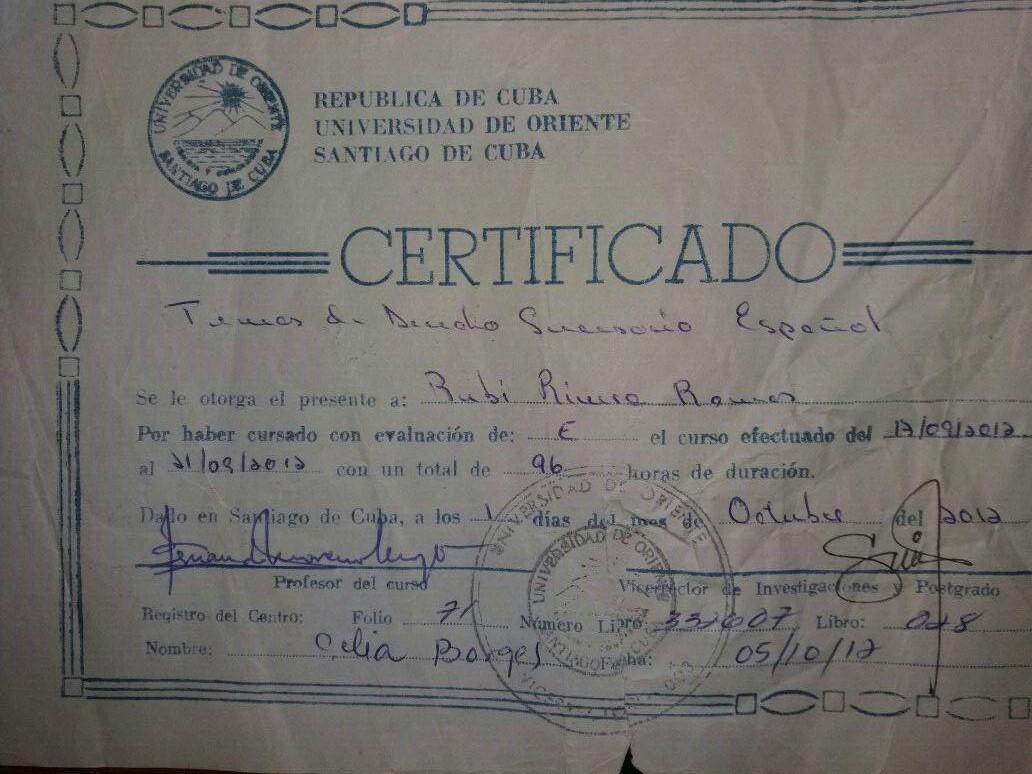 UNIVERSIDAD DE ORIENTE
SANTIAGO DE CUBA
REPUBLICA DE CUBA
UNIVERSIDAD DE ORIENTE
SANTIAGO DE CUBA
CERTIFICADO
Temas de Derecho Sucesorio Español
Se le otorga el presente a: Rubi Rivera Ramos
Por haber cursado con evaluación de: E el curso efectuado del 17/09/2012
al 21/09/2012 con un total de 96 horas de duración.
Dado en Santiago de Cuba, a los 1 días del mes de Octubre del 2012
Profesor del curso
Vicerrector de Investigaciones y Postgrado
Registro del Centro: Folio 71 Número Libro 331607 Libro: 028
Nombre: Celia Borges Fecha: 05/10/12
UNIVERSIDAD DE ORIENTE
UNIVERSIDAD DE ORIENTE
SANTIAGO